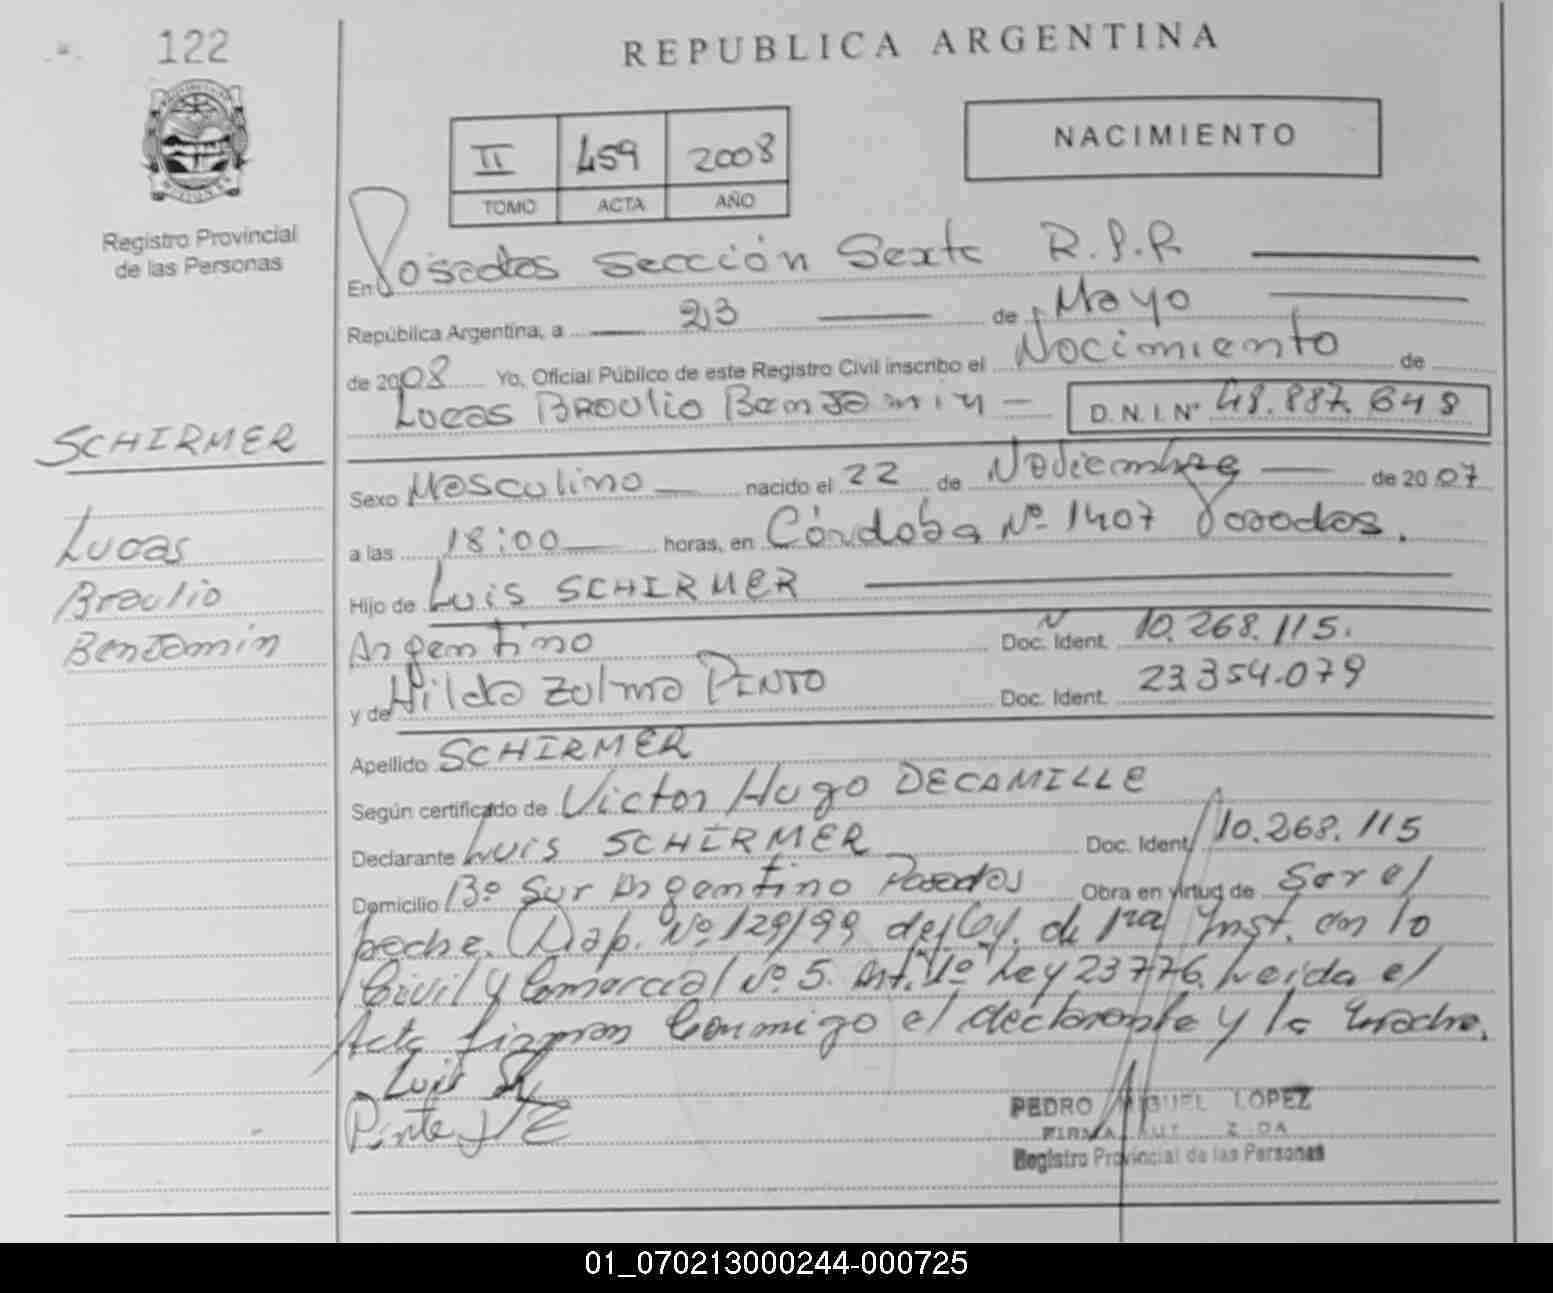 122
REPUBLICA ARGENTINA
NACIMIENTO
II 459 2008
TOMO ACTA AÑO
Registro Provincial
de las Personas
En Posadas Sección Sexta R.P.P
República Argentina, a 23 de Mayo
de 2008 Yo, Oficial Público de este Registro Civil inscribo el Nacimiento de
Lucas Braulio Benjamin D.N.I. Nº 48.887.648
SCHIRMER
Lucas
Braulio
Benjamin
Sexo Masculino nacido el 22 de Noviembre de 2007
a las 18:00 horas, en Córdoba Nº 1407 Posadas.
Hijo de Luis SCHIRMER
Argentino Doc. Ident. 10.268.115.
y de Hilda Zulma PINTO Doc. Ident. 23.354.079
Apellido SCHIRMER
Según certificado de Victor Hugo DECAMILLE
Declarante Luis SCHIRMER Doc. Ident. 10.268.115
Domicilio Bº Sur Argentino Posadas Obra en virtud de Ser el
padre. Disp. Nº 129/99 del de 1ra Inst. en lo
Civil y Comercial Nº 5. Art. 1º Ley 23776. Leida el
Acta firman conmigo el declarante y la madre.
Luis
Pinto
PEDRO MIGUEL LOPEZ
FIRMA
Registro Provincial de las Personas
01_070213000244-000725